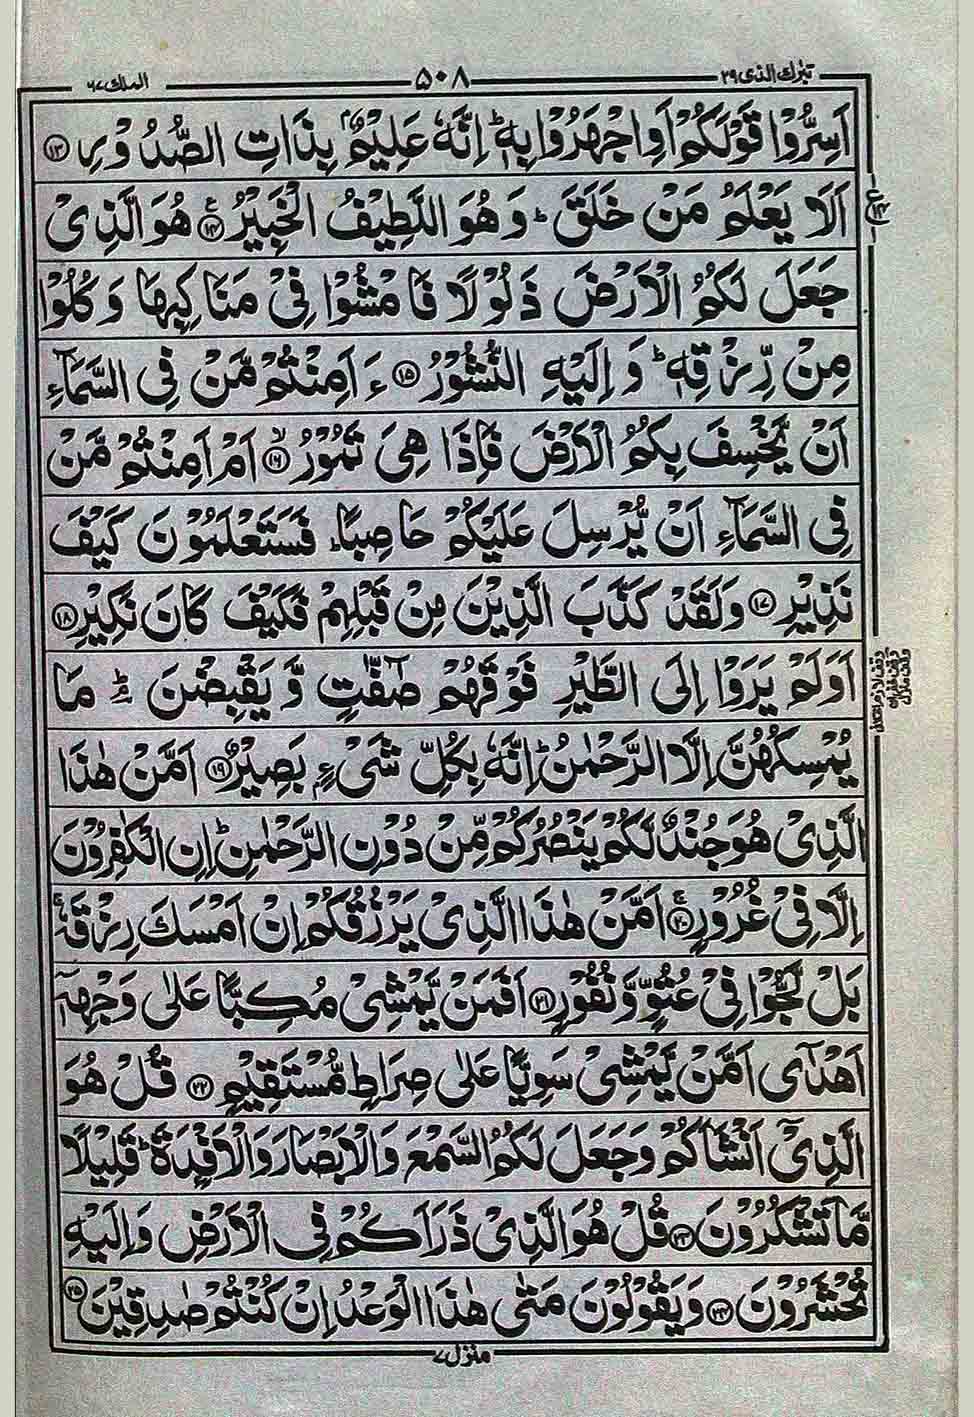 تبٰرك الذی ۲۹
۵۰۸
الملك ۶۷
اَسِرُّوْا قَوْلَكُمْ اَوِ اجْهَرُوْا بِهٖ ؕ اِنَّهٗ عَلِيْمٌۢ بِذَاتِ الصُّدُوْرِ ۝۱۳
اَلَا يَعْلَمُ مَنْ خَلَقَ ؕ وَ هُوَ اللَّطِيْفُ الْخَبِيْرُ ۝۱۴ هُوَ الَّذِيْ
جَعَلَ لَكُمُ الْاَرْضَ ذَلُوْلًا فَامْشُوْا فِيْ مَنَاكِبِهَا وَ كُلُوْا
مِنْ رِّزْقِهٖ ؕ وَ اِلَيْهِ النُّشُوْرُ ۝۱۵ ءَ اَمِنْتُمْ مَّنْ فِي السَّمَآءِ
اَنْ يَّخْسِفَ بِكُمُ الْاَرْضَ فَاِذَا هِيَ تَمُوْرُ ۝۱۶ اَمْ اَمِنْتُمْ مَّنْ
فِي السَّمَآءِ اَنْ يُّرْسِلَ عَلَيْكُمْ حَاصِبًا ؕ فَسَتَعْلَمُوْنَ كَيْفَ
نَذِيْرِ ۝۱۷ وَلَقَدْ كَذَّبَ الَّذِيْنَ مِنْ قَبْلِهِمْ فَكَيْفَ كَانَ نَكِيْرِ ۝۱۸
اَوَلَمْ يَرَوْا اِلَى الطَّيْرِ فَوْقَهُمْ صٰٓفّٰتٍ وَّ يَقْبِضْنَ ؔۘؕ مَا
يُمْسِكُهُنَّ اِلَّا الرَّحْمٰنُ ؕ اِنَّهٗ بِكُلِّ شَيْءٍۭ بَصِيْرٌ ۝۱۹ اَمَّنْ هٰذَا
الَّذِيْ هُوَ جُنْدٌ لَّكُمْ يَنْصُرُكُمْ مِّنْ دُوْنِ الرَّحْمٰنِ ؕ اِنِ الْكٰفِرُوْنَ
اِلَّا فِيْ غُرُوْرٍ ۝۲۰ اَمَّنْ هٰذَا الَّذِيْ يَرْزُقُكُمْ اِنْ اَمْسَكَ رِزْقَهٗ ۚ
بَلْ لَّجُّوْا فِيْ عُتُوٍّ وَّ نُفُوْرٍ ۝۲۱ اَفَمَنْ يَّمْشِيْ مُكِبًّا عَلٰى وَجْهِهٖٓ
اَهْدٰٓى اَمَّنْ يَّمْشِيْ سَوِيًّا عَلٰى صِرَاطٍ مُّسْتَقِيْمٍ ۝۲۲ قُلْ هُوَ
الَّذِيْٓ اَنْشَاَكُمْ وَجَعَلَ لَكُمُ السَّمْعَ وَالْاَبْصَارَ وَالْاَفْـِٕدَةَ ؕ قَلِيْلًا
مَّا تَشْكُرُوْنَ ۝۲۳ قُلْ هُوَ الَّذِيْ ذَرَاَكُمْ فِي الْاَرْضِ وَاِلَيْهِ
تُحْشَرُوْنَ ۝۲۴ وَيَقُوْلُوْنَ مَتٰى هٰذَا الْوَعْدُ اِنْ كُنْتُمْ صٰدِقِيْنَ ۝۲۵
منزل ۷